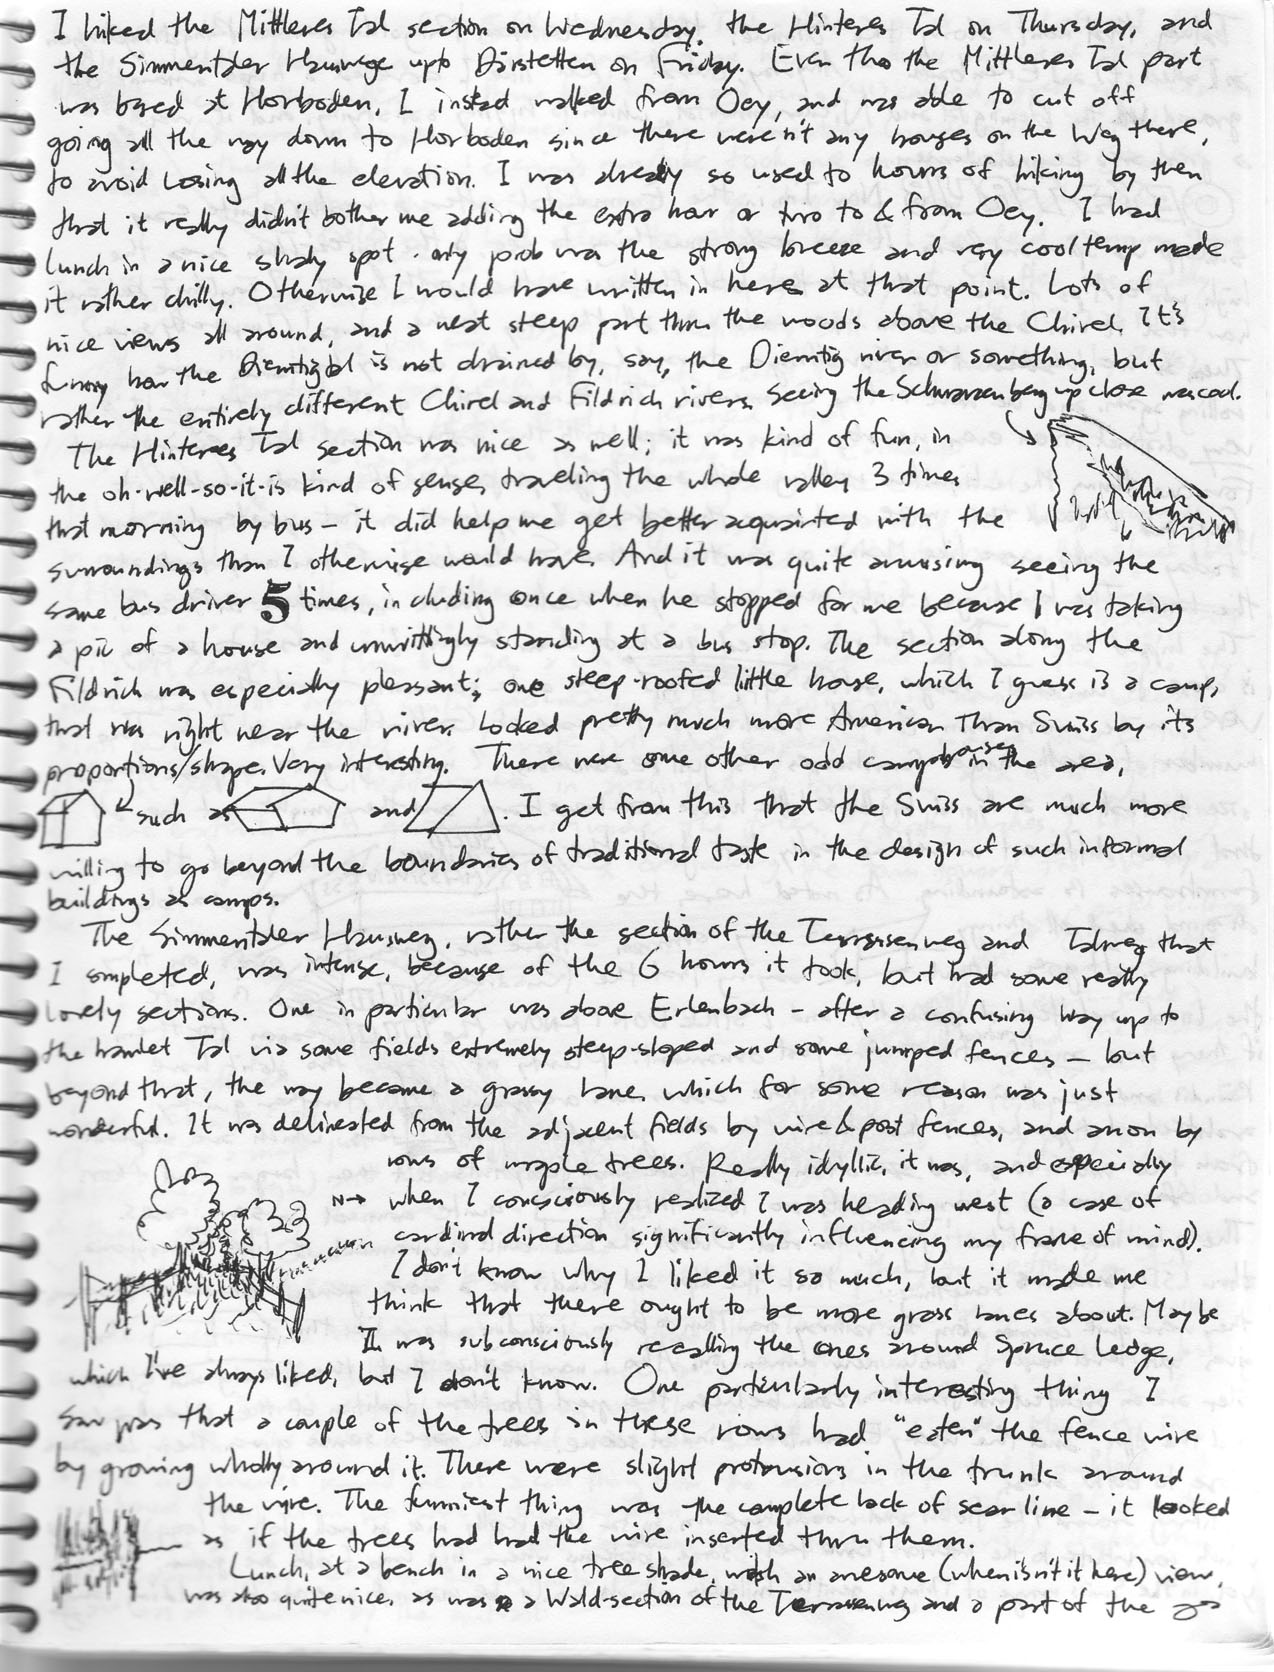 I hiked the Mittleres Tal section on Wednesday, the Hinteres Tal on Thursday, and
the Simmentaler Hauswege upto Därstetten on Friday. Even tho the Mittleres Tal part
was based at Horboden, I instead walked from Oey, and was able to cut off
going all the way down to Horboden since there weren't any houses on the Weg there,
to avoid losing all the elevation. I was already so used to hours of hiking by then
that it really didn't bother me adding the extra hour or two to & from Oey. I had
lunch in a nice shady spot - only prob was the strong breeze and very cool temp made
it rather chilly. Otherwise I would have written in here at that point. Lots of
nice views all around, and a neat steep part thru the woods above the Chirel. It's
funny how the Diemtigtal is not drained by, say, the Diemtig river or something, but
rather the entirely different Chirel and Fildrich rivers. Seeing the Schwarzenberg up close was cool.
The Hinteres Tal section was nice as well; it was kind of fun, in
the oh-well-so-it-is kind of sense, traveling the whole valley 3 times
that morning by bus – it did help me get better acquainted with the
surroundings than I otherwise would have. And it was quite amusing seeing the
same bus driver 5 times, including once when he stopped for me because I was taking
a pic of a house and unwittingly standing at a bus stop. The section along the
Fildrich was especially pleasant; one steep-roofed little house, which I guess is a camp,
that was right near the river. Looked pretty much more American than Swiss by its
proportions/shape. Very interesting. There were some other odd camp houses in the area,
such as and . I get from this that the Swiss are much more
willing to go beyond the boundaries of traditional taste in the design of such informal
buildings as camps.
The Simmentaler Hausweg, rather the section of the Terrassenweg and Talweg that
I ompleted, was intense, because of the 6 hours it took, but had some really
lovely sections. One in particular was above Erlenbach – after a confusing way up to
the hamlet Tal via some fields extremely steep-sloped and some jumped fences – but
beyond that, the way became a grassy lane, which for some reason was just
wonderful. It was delineated from the adjacent fields by wire & post fences, and anon by
rows of maple trees. Really idyllic, it was, and especially
N→ when I consciously realized I was heading west (a case of
cardinal direction significantly influencing my frame of mind).
I don't know why I liked it so much, but it made me
think that there ought to be more grass lanes about. Maybe
I was subconsciously recalling the ones around Spruce Ledge,
which I've always liked, but I don't know. One particularly interesting thing I
saw was that a couple of the trees in these rows had "eaten" the fence wire
by growing wholly around it. There were slight protrusions in the trunk around
the wire. The funniest thing was the complete lack of scar line – it looked
as if the trees had had the wire inserted thru them.
Lunch, at a bench in a nice tree shade, with an awesome (when isn't it here) view,
was also quite nice, as was a Wald-section of the Terrassenweg and a part of the